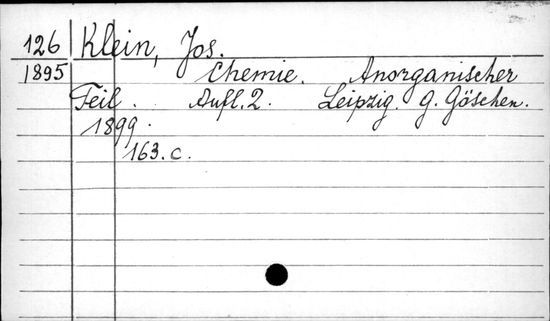 126 Klein, Jos.
1895 Chemie. Anorganischer
Teil. Aufl. 2. Leipzig. G. Göschen.
1899.
163. c.